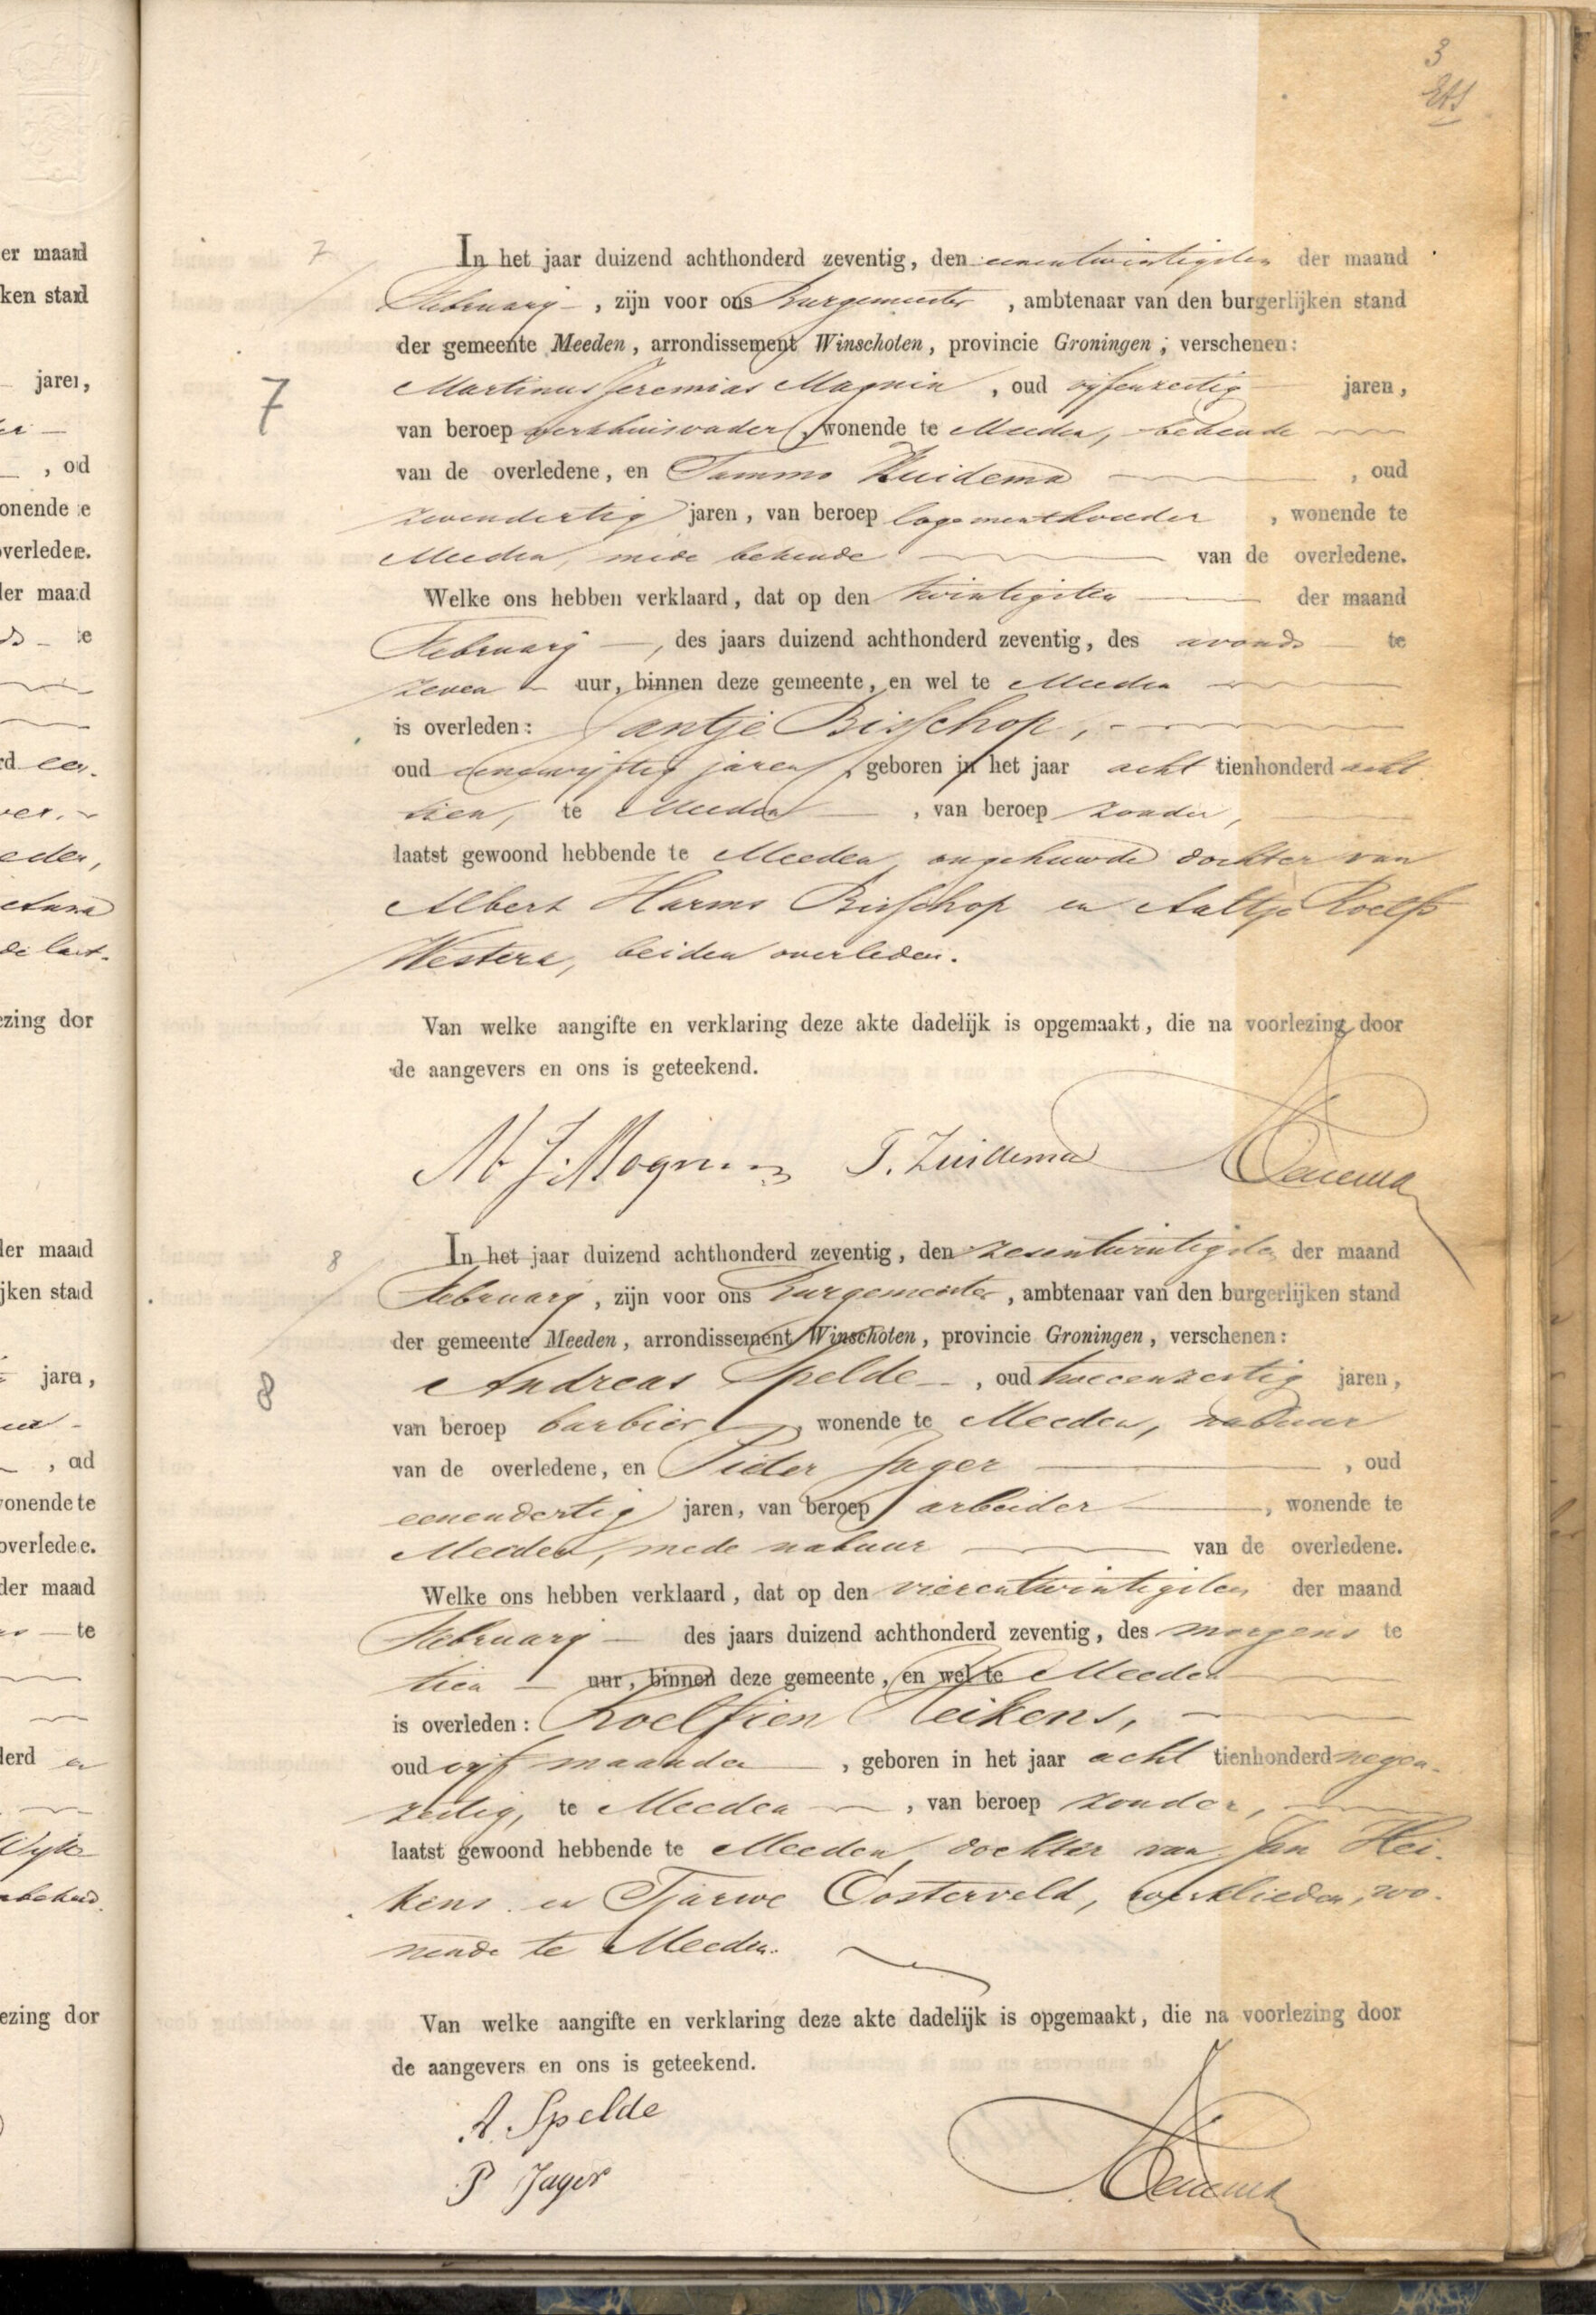 3
er maand
ken stand
jaren,
, oud
onende te
overledene.
der maand
te
Anna
de laat-
ezing door
der maand
jken stand
jaren,
, oud
wonende te
overledene.
der maand
te
ezing door
7
In het jaar duizend achthonderd zeventig, den eenentwintigsten der maand
Februarij, zijn voor ons Burgemeester, ambtenaar van den burgerlijken stand
der gemeente Meeden, arrondissement Winschoten, provincie Groningen, verschenen:
7
Martinus Jeremias Magnin, oud vijfenzestig jaren,
van beroep werkhuisvader, wonende te Meeden, bekende
van de overledene, en Tammo Zuidema, oud
zevendertig jaren, van beroep logementhouder, wonende te
Meeden, mede bekende van de overledene.
Welke ons hebben verklaard, dat op den twintigsten der maand
Februarij, des jaars duizend achthonderd zeventig, des avonds te
zeven uur, binnen deze gemeente, en wel te Meeden
is overleden: Jantje Bisschop,
oud eenenvijftig jaren, geboren in het jaar acht tienhonderd acht
tien, te Meeden, van beroep zonder,
laatst gewoond hebbende te Meeden, ongehuwde dochter van
Albert Harms Bisschop en Aaltje Roelfs
Westera, beiden overleden.
Van welke aangifte en verklaring deze akte dadelijk is opgemaakt, die na voorlezing door
de aangevers en ons is geteekend.
M. J. Magnin T. Zuidema Venema
8
In het jaar duizend achthonderd zeventig, den zesentwintigsten der maand
Februarij, zijn voor ons Burgemeester, ambtenaar van den burgerlijken stand
der gemeente Meeden, arrondissement Winschoten, provincie Groningen, verschenen:
8
Andreas Spelde, oud tweeenzestig jaren,
van beroep barbier, wonende te Meeden, nabuur
van de overledene, en Pieter Jager, oud
eenendertig jaren, van beroep arbeider, wonende te
Meeden, mede nabuur van de overledene.
Welke ons hebben verklaard, dat op den vierentwintigsten der maand
Februarij des jaars duizend achthonderd zeventig, des morgens te
tien uur, binnen deze gemeente, en wel te Meeden
is overleden: Roelfien Heikens,
oud vijf maanden, geboren in het jaar acht tienhonderd negen-
zestig, te Meeden, van beroep zonder,
laatst gewoond hebbende te Meeden, dochter van Jan Hei-
kens en Tjarwe Oosterveld, werklieden, wo-
nende te Meeden.
Van welke aangifte en verklaring deze akte dadelijk is opgemaakt, die na voorlezing door
de aangevers en ons is geteekend.
A. Spelde
P Jager
Venema